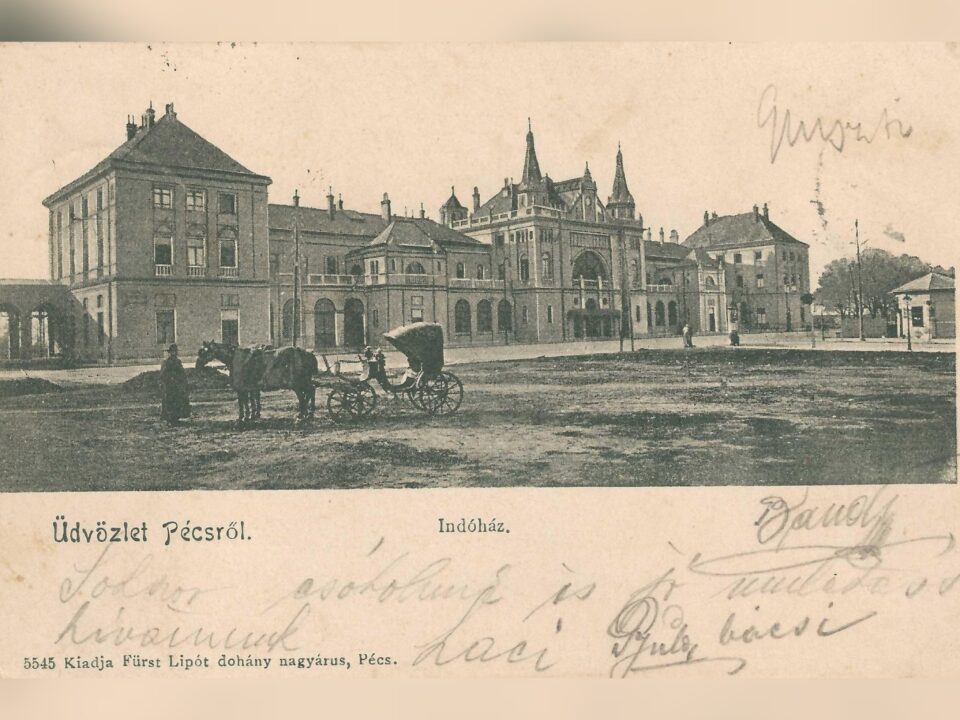 Guszti
Üdvözlet Pécsről.
Indóház.
Bandi
Sodszor csókolunk és jó mulatást
kívánunk
Laci Gyula bácsi
5545 Kiadja Fürst Lipót dohány nagyárus, Pécs.